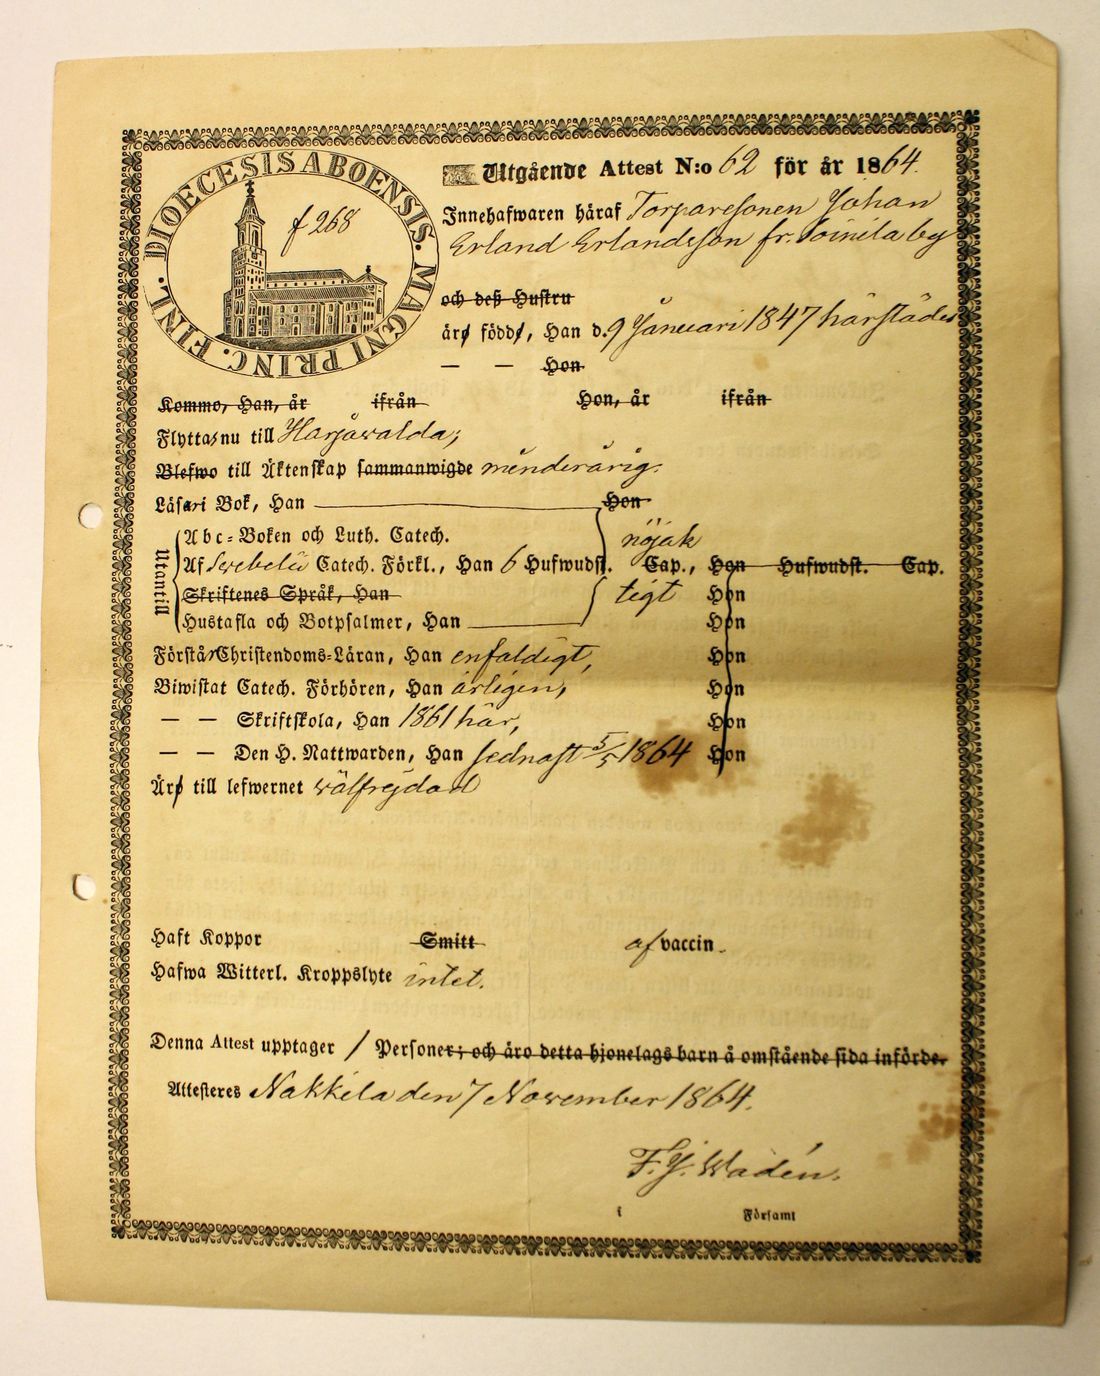 DIOECESIS ABOENSIS. MAGNI PRINC. FINL.
f 268
Utgående Attest N:o 62 för år 1864.
Innehafwaren häraf Torparesonen Johan
Erland Erlandsson fr. Soinila by
och deß Hustru
äro födde, Han d. 9 Januari 1847 härstädes
— — Hon
Kommo, Han, år ifrån Hon, år ifrån
Flytta nu till Harjawalda;
Blefwo till Äktenskap sammanwigde minderårig.
Läsa i Bok, Han Hon
Utantill
Abc-Boken och Luth. Catech. nöjak
Af Serebelii Catech. Förkl., Han 6 Hufwudst. Cap., Hon Hufwudst. Cap.
Skriftenes Språk, Han tigt Hon
Hustafla och Botpsalmer, Han Hon
Förstår Christendoms-Läran, Han enfaldigt, Hon
Biwistat Catech. Förhören, Han årligen, Hon
— — Skriftskola, Han 1861 här, Hon
— — Den H. Nattwarden, Han sednast 5/5 1864 Hon
Äro till lefwernet wälfrejdad
Haft Koppor Smitt af vaccin.
Hafwa Witterl. Kroppslyte intet.
Denna Attest upptager 1 Personer; och äro detta hjonelags barn å omstående sida införde.
Attesteres Nakkila den 7 November 1864.
F. J. Wadén.
i Församl